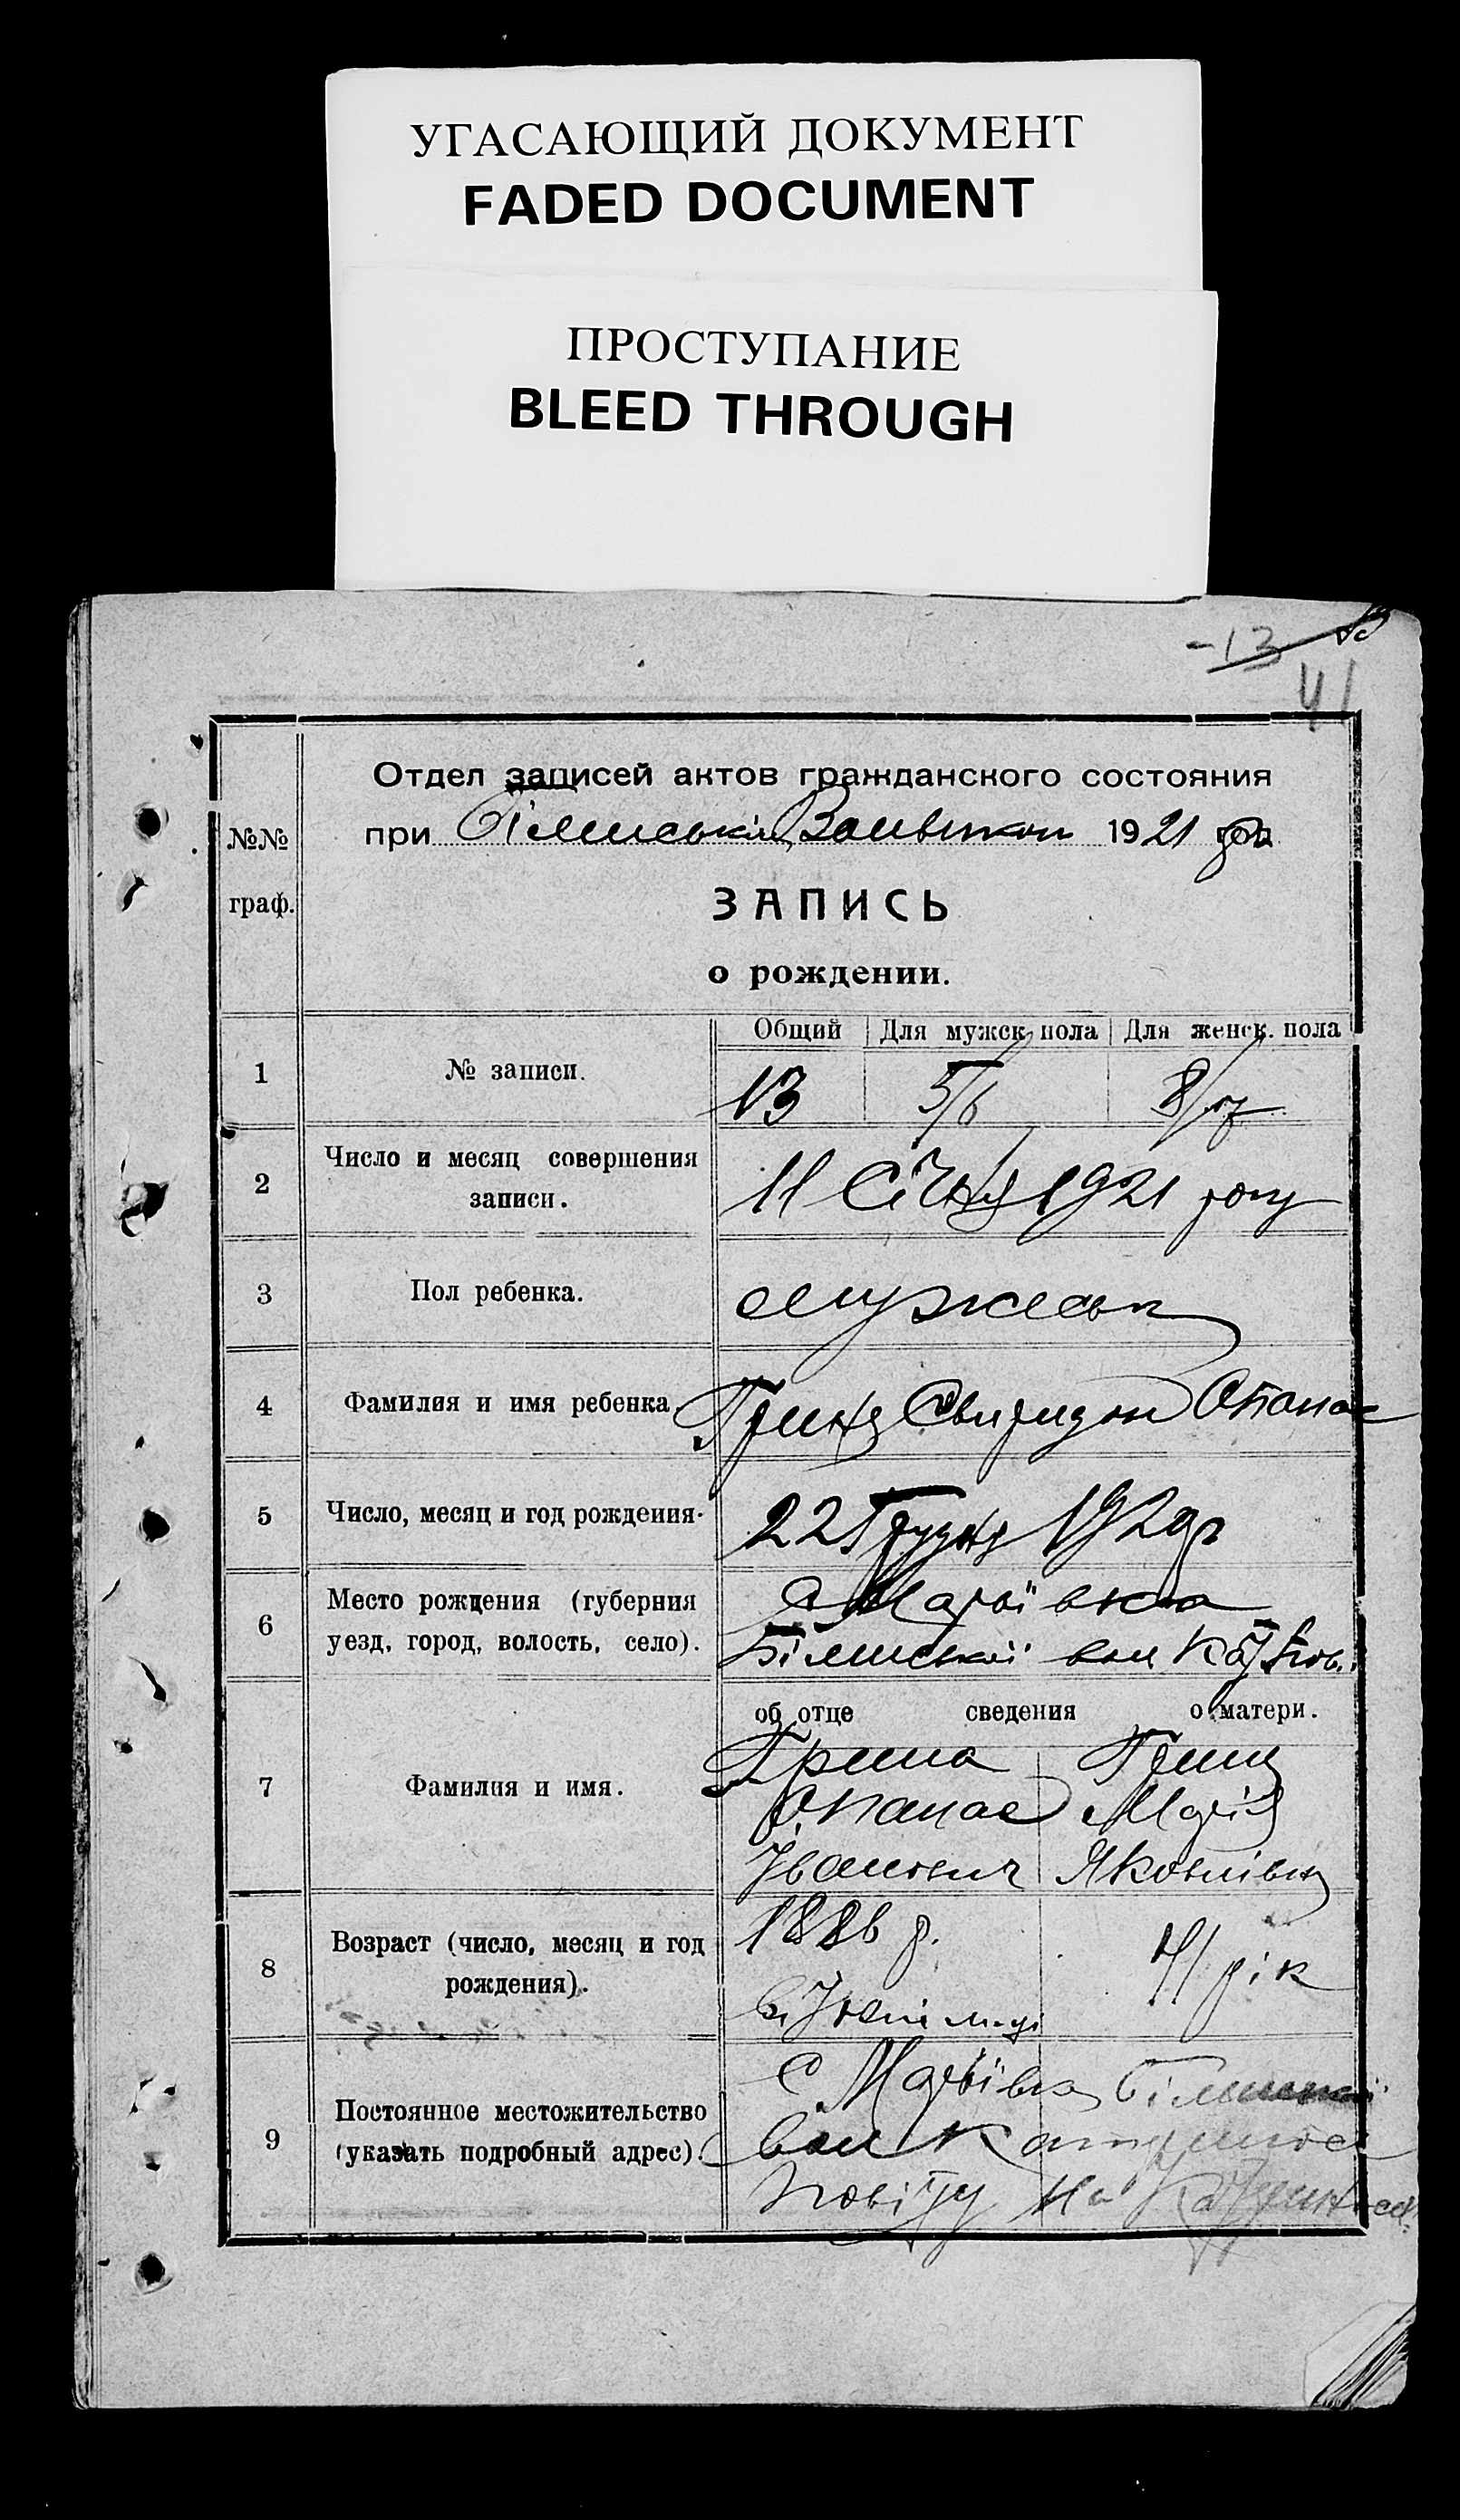 УГАСАЮЩИЙ ДОКУМЕНТ
FADED DOCUMENT
ПРОСТУПАНИЕ
BLEED THROUGH
-13
41
№№
граф.
Отдел записей актов гражданского состояния
при 1921
ЗАПИСЬ
о рождении.
Общий Для мужск пола Для женск. пола
1 № записи. 13 5/ 8/
2 Число и месяц совершения
записи. 11 Січня 1921 року
3 Пол ребенка. мужеськ
4 Фамилия и имя ребенка. Грина Свиридон Опанас
5 Число, месяц и год рождения. 22 Грудня 1920 р
6 Место рождения (губерния
уезд, город, волость, село). с Марьївка
Білмиської вол Кат пов.
об отце сведения о матери.
7 Фамилия и имя. Грина Грина
Опанас Марія
Іванович Яковлівна
8 Возраст (число, месяц и год
рождения). 1886 р. 41 рік
9 Постоянное местожительство
(указать подробный адрес).
с Марьївка Білмиської
вол
повіту на